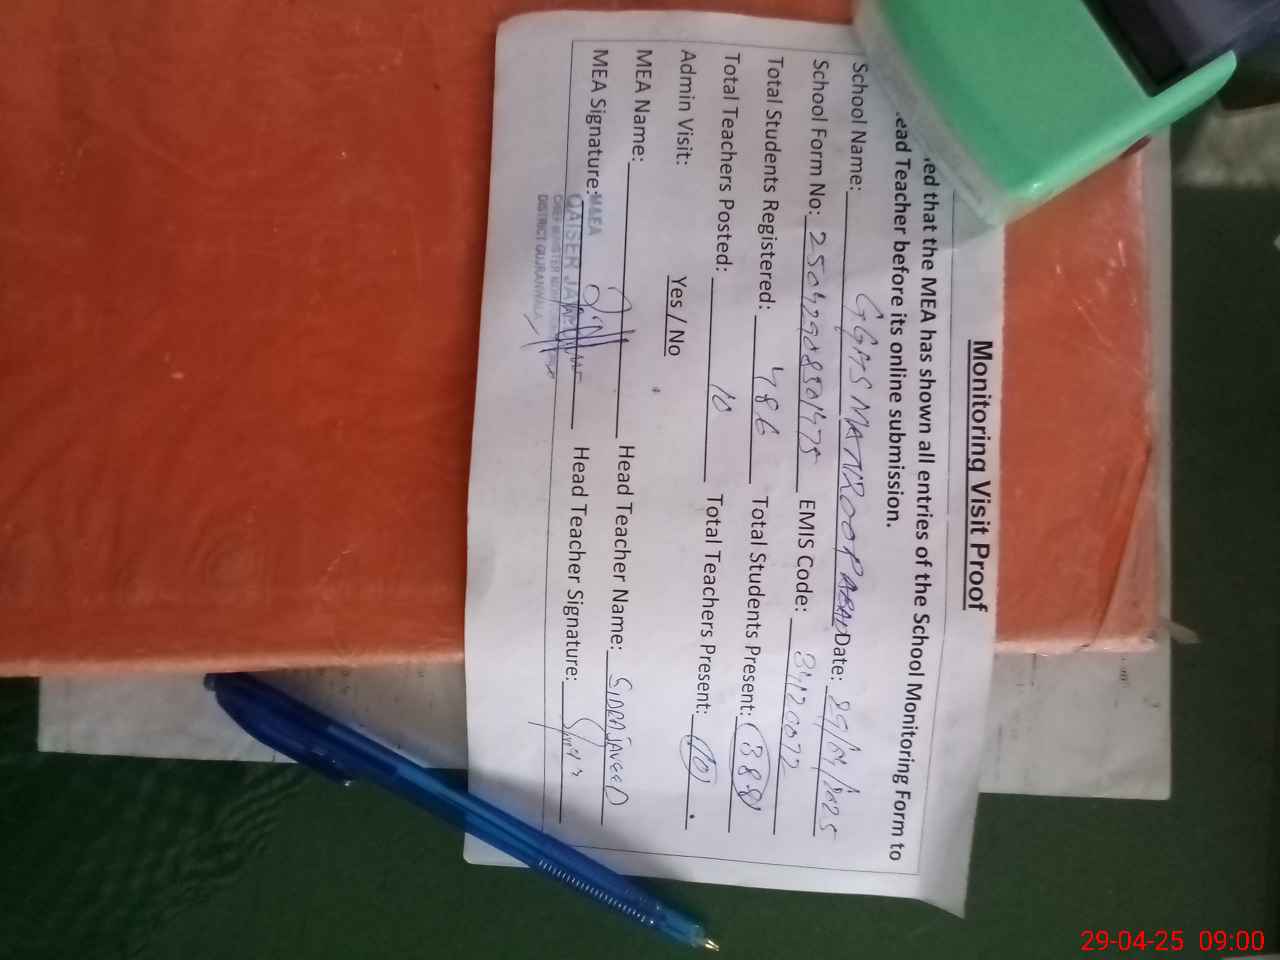 Monitoring Visit Proof
ed that the MEA has shown all entries of the School Monitoring Form to
ead Teacher before its online submission.
School Name: GGMS Date: 29/04/2025
School Form No: EMIS Code:
Total Students Registered: 486 Total Students Present: 388
Total Teachers Posted: 10 Total Teachers Present: 10
Admin Visit: Yes / No
MEA Name: Head Teacher Name: SIDRA JAVEED
MEA Signature: Head Teacher Signature:
MAEA
QAISER
CHIEF MINISTER
DISTRICT GUJRANWALA
29-04-25 09:00